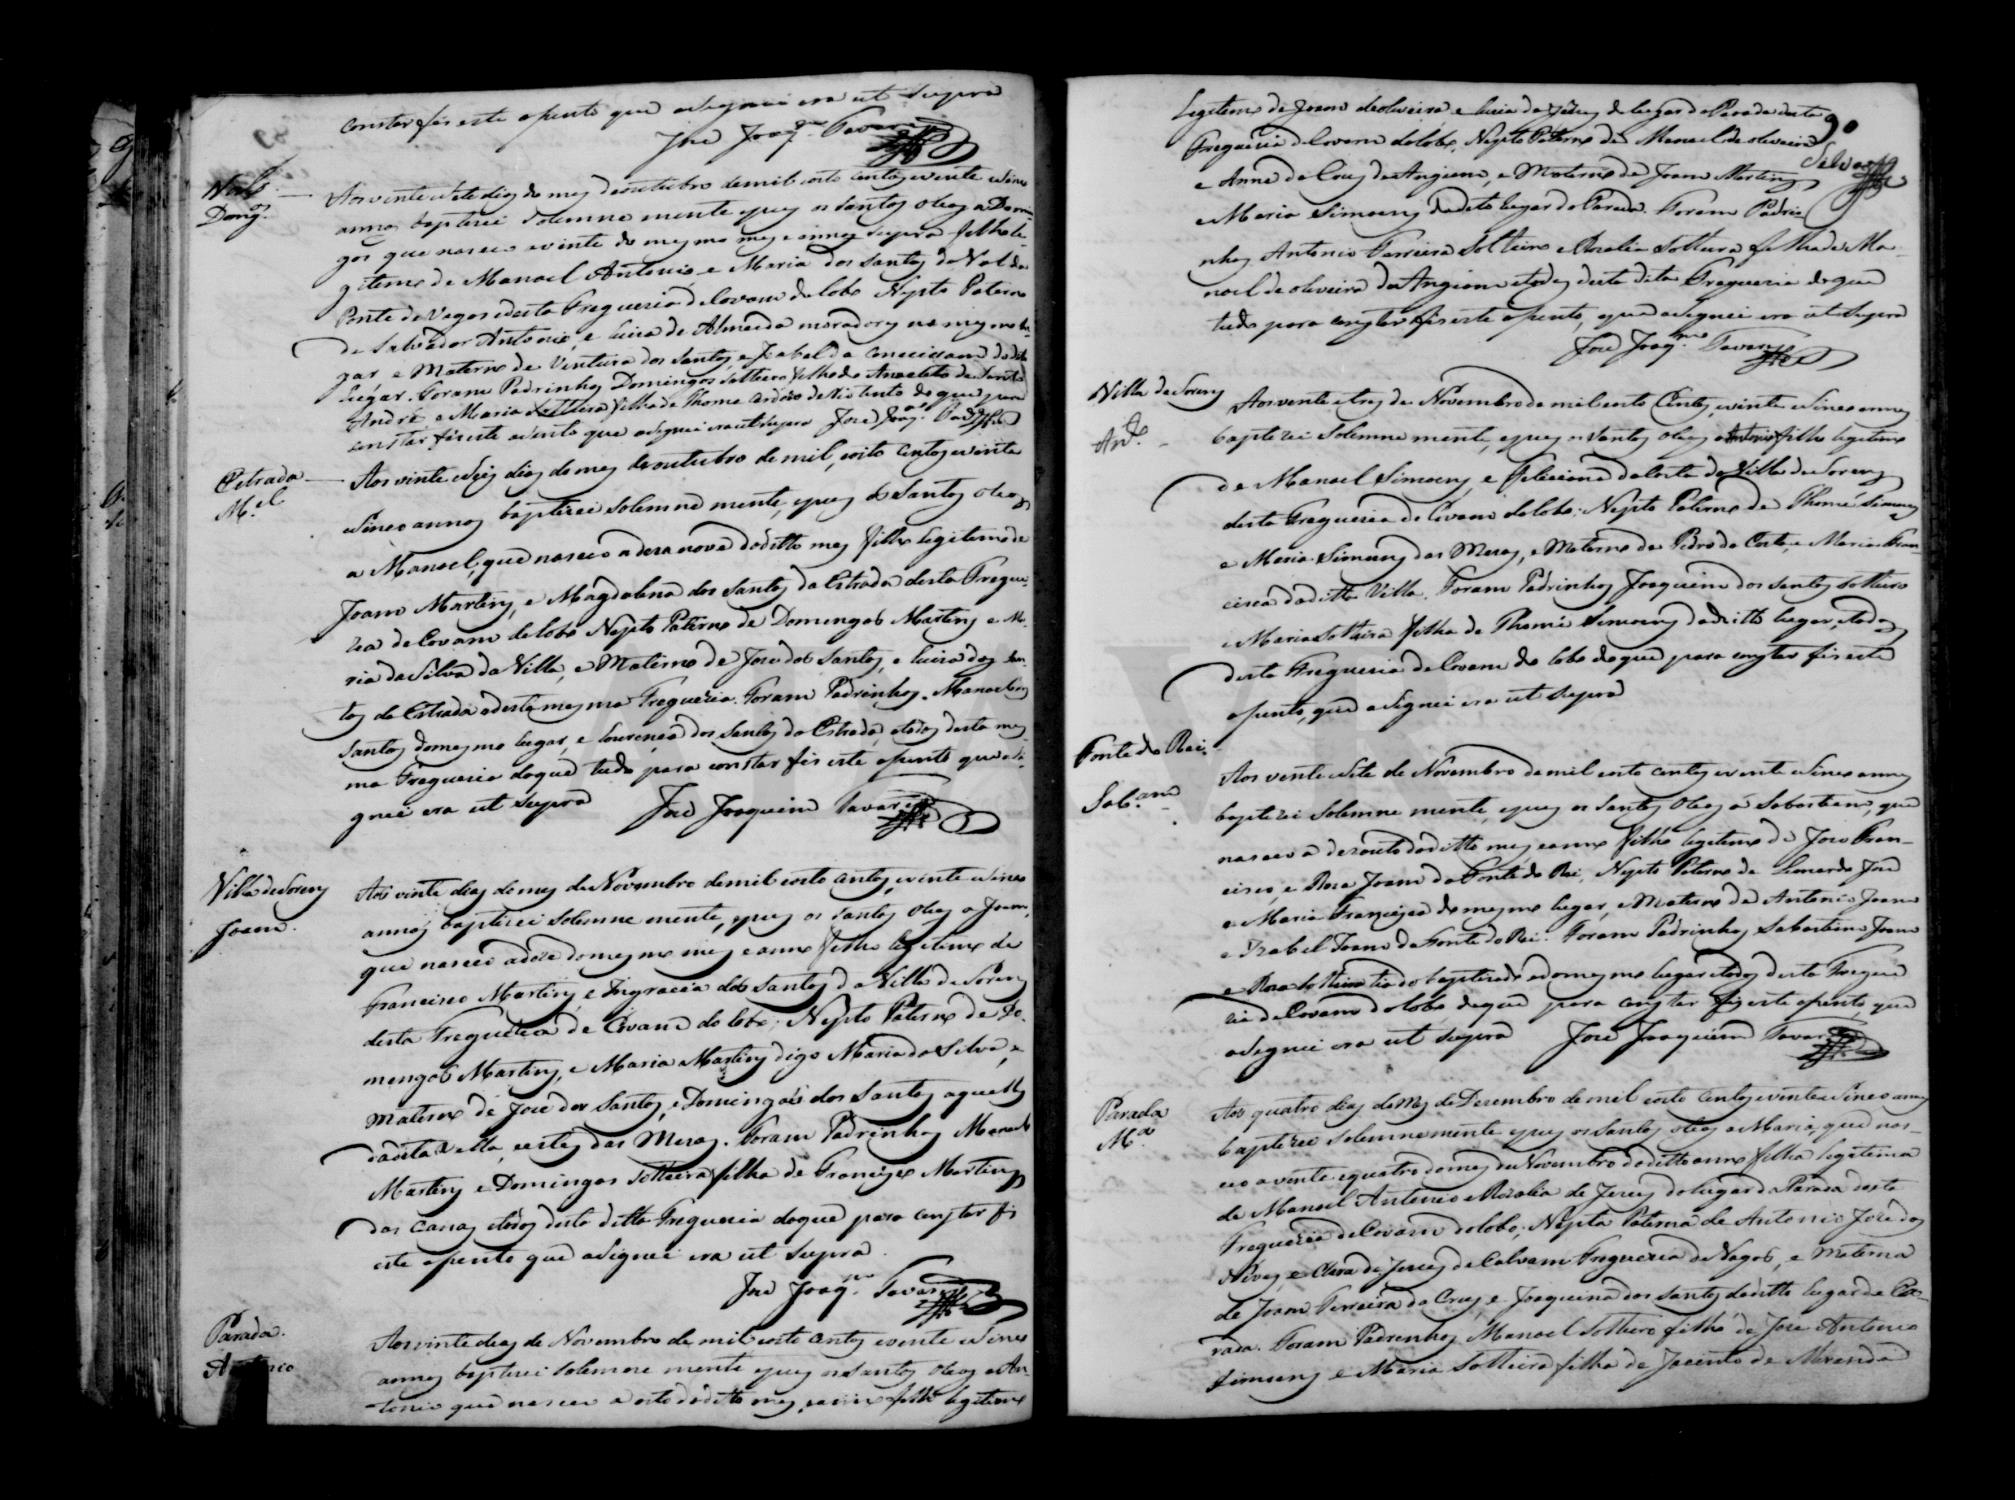 constar fis este asento que asignei era ut supra
Joze Joaq.m Tavares
Dom.os
Aos vinte e sete dias do mes de outubro de mil oito centos e vinte e sinco
annos baptizei solemne mente, e puz os santos oleos a Domin-
gos que nasceo a vinte do mesmo mes e anno supra filho le-
gitimo de Manoel Antonio, e Maria dos Santos do Val da
Ponte de Vagos desta Freguezia de Covam do lobo Nepto Paterno
de Salvador Antonio, e Luiza de Almeida moradores no mesmo lu-
gar e Materno de Ventura dos Santos, e Izabel da Conceissam do dito
lugar. Foram Padrinhos Domingos solteiro filho de Anacleto de Santo
André e Maria solteira filha de Thome Cardozo de que para
constar fis este asento que asignei era ut supra Joze Joaq.m Tavares
Estrada
M.el
Aos vinte e seis dias do mes de outubro de mil, oito centos e vinte
e sinco annos baptizei solemne mente, e puz os Santos oleos
a Manoel, que nasceo a deza nove do ditto mes filho legitimo de
Joam Martins, e Magdalena dos Santos da Estrada desta Fregue-
zia de Covam do lobo Nepto Paterno de Domingos Martins e Ma-
ria da Silva da Villa, e Materno de Joze dos Santos, e Luiza dos San-
tos da Estrada desta mesma Freguezia. Foram Padrinhos Manoel dos
Santos do mesmo lugar, e Lourença dos Santos da Estrada, e todos desta mes-
ma Freguezia do que tudo para constar fis este asento que asi-
gnei era ut supra Joze Joaquim Tavares
Villa de Sorens
Joam.
Aos vinte dias do mes de Novembro de mil oito centos, e vinte e sinco
annos baptizei solemne mente, e puz os santos oleos a Joam,
que nasceo a doze do mesmo mes e anno filho legitimo de
Francisco Martins, e Ingracia dos Santos da Villa de Sorens
desta Freguezia de Covam do lobo; Nepto Paterno de Do-
mengos Martins, e Maria Martins digo Maria da Silva, e
Materno de Joze dos Santos, e Domingas dos Santos aquelles
da dita Villa, e estes das Mezas. Foram Padrinhos Manoel
Martins e Domingas solteira filha de Francisco Martins
das Canas e todos desta ditta Freguezia do que para constar fis
este asento que asignei era ut supra.
Joze Joaq.m Tavares
Parada.
Antonio
Aos vinte dias de Novembro de mil oito centos e vinte e sinco
annos baptizei solemne mente e puz os santos oleos a An-
tonio que nasceo a oito do ditto mes, e anno filho legitimo
90
Silva
legitimo de Joam de oliveira, e Luiza de Jezus do lugar da Parada desta
Freguezia de Covam do lobo, Nepto Paterno de Manoel de oliveira
e Anna da Cruz da Angiam, e Materno de Joam Martins
e Maria Simoens do dito lugar da Parada. Foram Padri-
nhos Antonio Ferreira solteiro e Rozalia solteira filha de Ma-
noel de oliveira da Angiam e todos desta dita Freguezia do que
tudo para constar fis este asento, que asignei era ut supra
Joze Joaq.m Tavares
Villa de Sorens
An.to
Aos vente e tres de Novembro de mil oito Centos, e vinte e sinco annos
baptizei solemne mente, e puz os santos oleos a Antonio filho legitimo
de Manoel Simoens, e Feleciana da Costa da Villa de Sorens
desta Freguezia de Covam do lobo; Nepto Paterno de Thomé Simoens
e Maria Simoens das Mezas, e Materno de Pedro da Costa, e Maria Fran-
cisca da ditta Villa. Foram Padrinhos Joaquim dos Santos solteiro
e Maria solteira filha de Thomé Simoens do ditto lugar, e todos
desta Freguezia de Covam do lobo do que para constar fis este
asento, que asignei era ut supra
Fonte do Rei.
Seb.am
Aos vente e sete de Novembro de mil oito centos e vente e sinco annos
baptizei solemne mente, e puz os santos oleos a Sebastiam, que
nasceo a dezouto do ditto mes e anno filho legitimo de Joze Fran-
cisco, e Roza Joam da Fonte do Rei, Nepto Paterno de Leonardo Joze
e Maria Francisca do mesmo lugar, e Materno de Antonio Joam
e Izabel Joam da Fonte do Rei. Foram Padrinhos Sabastiam Joam
e Roza solteira tia do baptizado e do mesmo lugar e todos desta Fregue-
zia de Covam do lobo, do que para constar fis este asento, que
asignei era ut supra Joze Joaquim Tavares
Parada
M.a
Aos quatro dias do Mes de Dezembro de mil oito Centos e vinte e sinco annos
baptizei solemne mente e puz os santos oleos a Maria, que nas-
ceo a vente e quatro do mes de Novembro do ditto anno filha legitima
de Manoel Antonio e Rozalia de Jezus do lugar da Parada desta
Freguezia de Covam do lobo, Nepta Paterna de Antonio Joze das
Neves, e Clara de Jezus de Calvam Freguezia de Vagos, e Materna
de Joam Ferreira da Cruz e Joaquina dos Santos do ditto lugar da Pa-
rada. Foram Padrinhos Manoel solteiro filho de Joze Antonio
Simoens e Maria solteira filha de Jacinto de Miranda